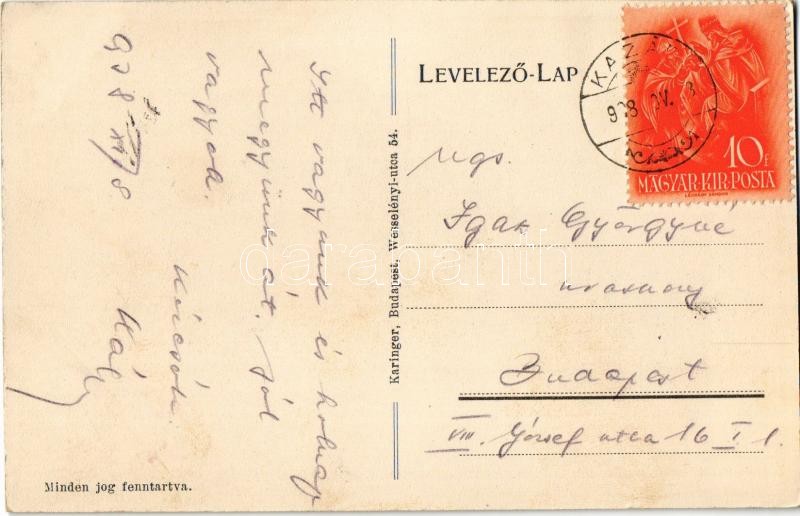 LEVELEZŐ-LAP
10 f
MAGYAR·KIR·POSTA
Ngs.
Igaz Györgyné
úrasszony
Budapest
VIII. József utca 16 I. 1.
Karinger, Budapest, Wesselényi-utca 54.
Itt vagyunk és holnap
megyünk át. Jól
vagyok.
Kézcsók.
938
Minden jog fenntartva.
darabanth